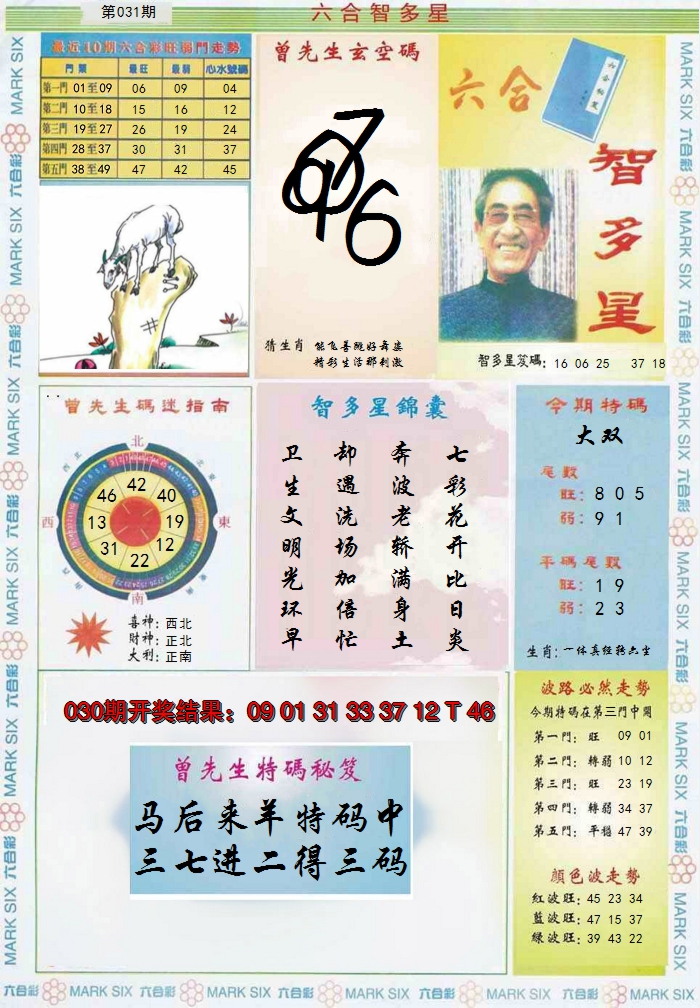 第031期
六合智多星
最近10期六合彩旺弱門走勢
門類 最旺 最弱 心水號碼
第一門 01至09 06 09 04
第二門 10至18 15 16 12
第三門 19至27 26 19 24
第四門 28至37 30 31 37
第五門 38至49 47 42 45
曾先生玄空碼
猜生肖 能飞善跳好舞姿
精彩生活那刺激
六合
智多星
智多星笈碼: 16 06 25 37 18
曾先生碼迷指南
北
西
東
南
42
46 40
13 19
31 12
22
喜神: 西北
財神: 正北
大利: 正南
智多星錦囊
七彩花开比日炎
奔波老轿满身土
却遇洗场加倍忙
卫生文明光环早
今期特碼
大双
尾數
旺: 8 0 5
弱: 9 1
平碼尾數
旺: 1 9
弱: 2 3
030期开奖结果: 09 01 31 33 37 12 T 46
曾先生特碼秘笈
马后来羊特码中
三七进二得三码
波路必然走勢
今期特碼在第三門中開
第一門: 旺 09 01
第二門: 轉弱 10 12
第三門: 旺 23 19
第四門: 轉弱 34 37
第五門: 平穩 47 39
顔色波走勢
紅波旺: 45 23 34
藍波旺: 47 15 37
綠波旺: 39 43 22
MARK SIX 六合彩 MARK SIX 六合彩 MARK SIX 六合彩 MARK SIX 六合彩